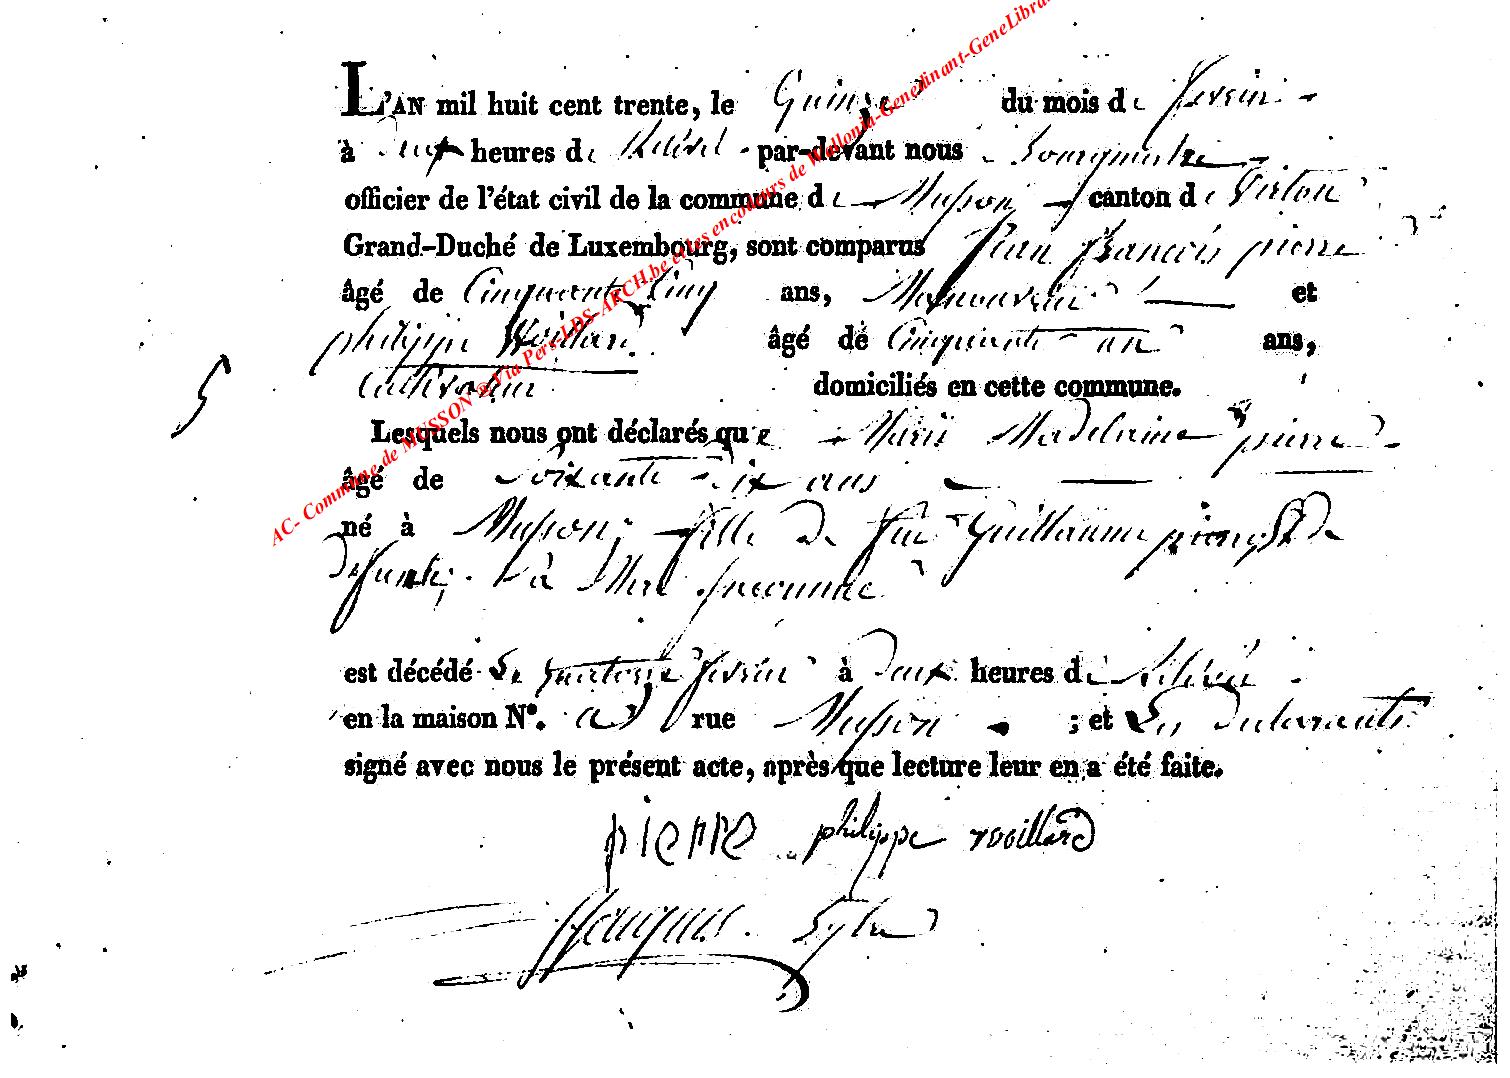 AC- Commune de MUSSON ® Via Pers-LDS-ARCH.be et les encodeurs de Wallonia-Genedinant-GeneLibra
L'AN mil huit cent trente, le Quinze du mois de fevrier
à heures de Relevé par-devant nous Bourgmestre
officier de l'état civil de la commune de Musson canton de Virton
Grand-Duché de Luxembourg, sont comparus Jean françois pierre
âgé de Cinquante Cinq ans, Manouvrier et
philippe Rouillard âgé de Cinquante un ans,
5
Cultivateur domiciliés en cette commune.
Lesquels nous ont déclarés que Marie Madelaine pierre
âgé de Soixante Dix ans
né à Musson, fille de feu Guillaume pierre, & de
defunte, Mere Inconnue
est décédé Le quatorze fevrier à deux heures de Relevée
en la maison N°. rue Musson ; et Les Declarants
signé avec nous le présent acte, après que lecture leur en a été faite.
pierre philippe rooillard
Jacques